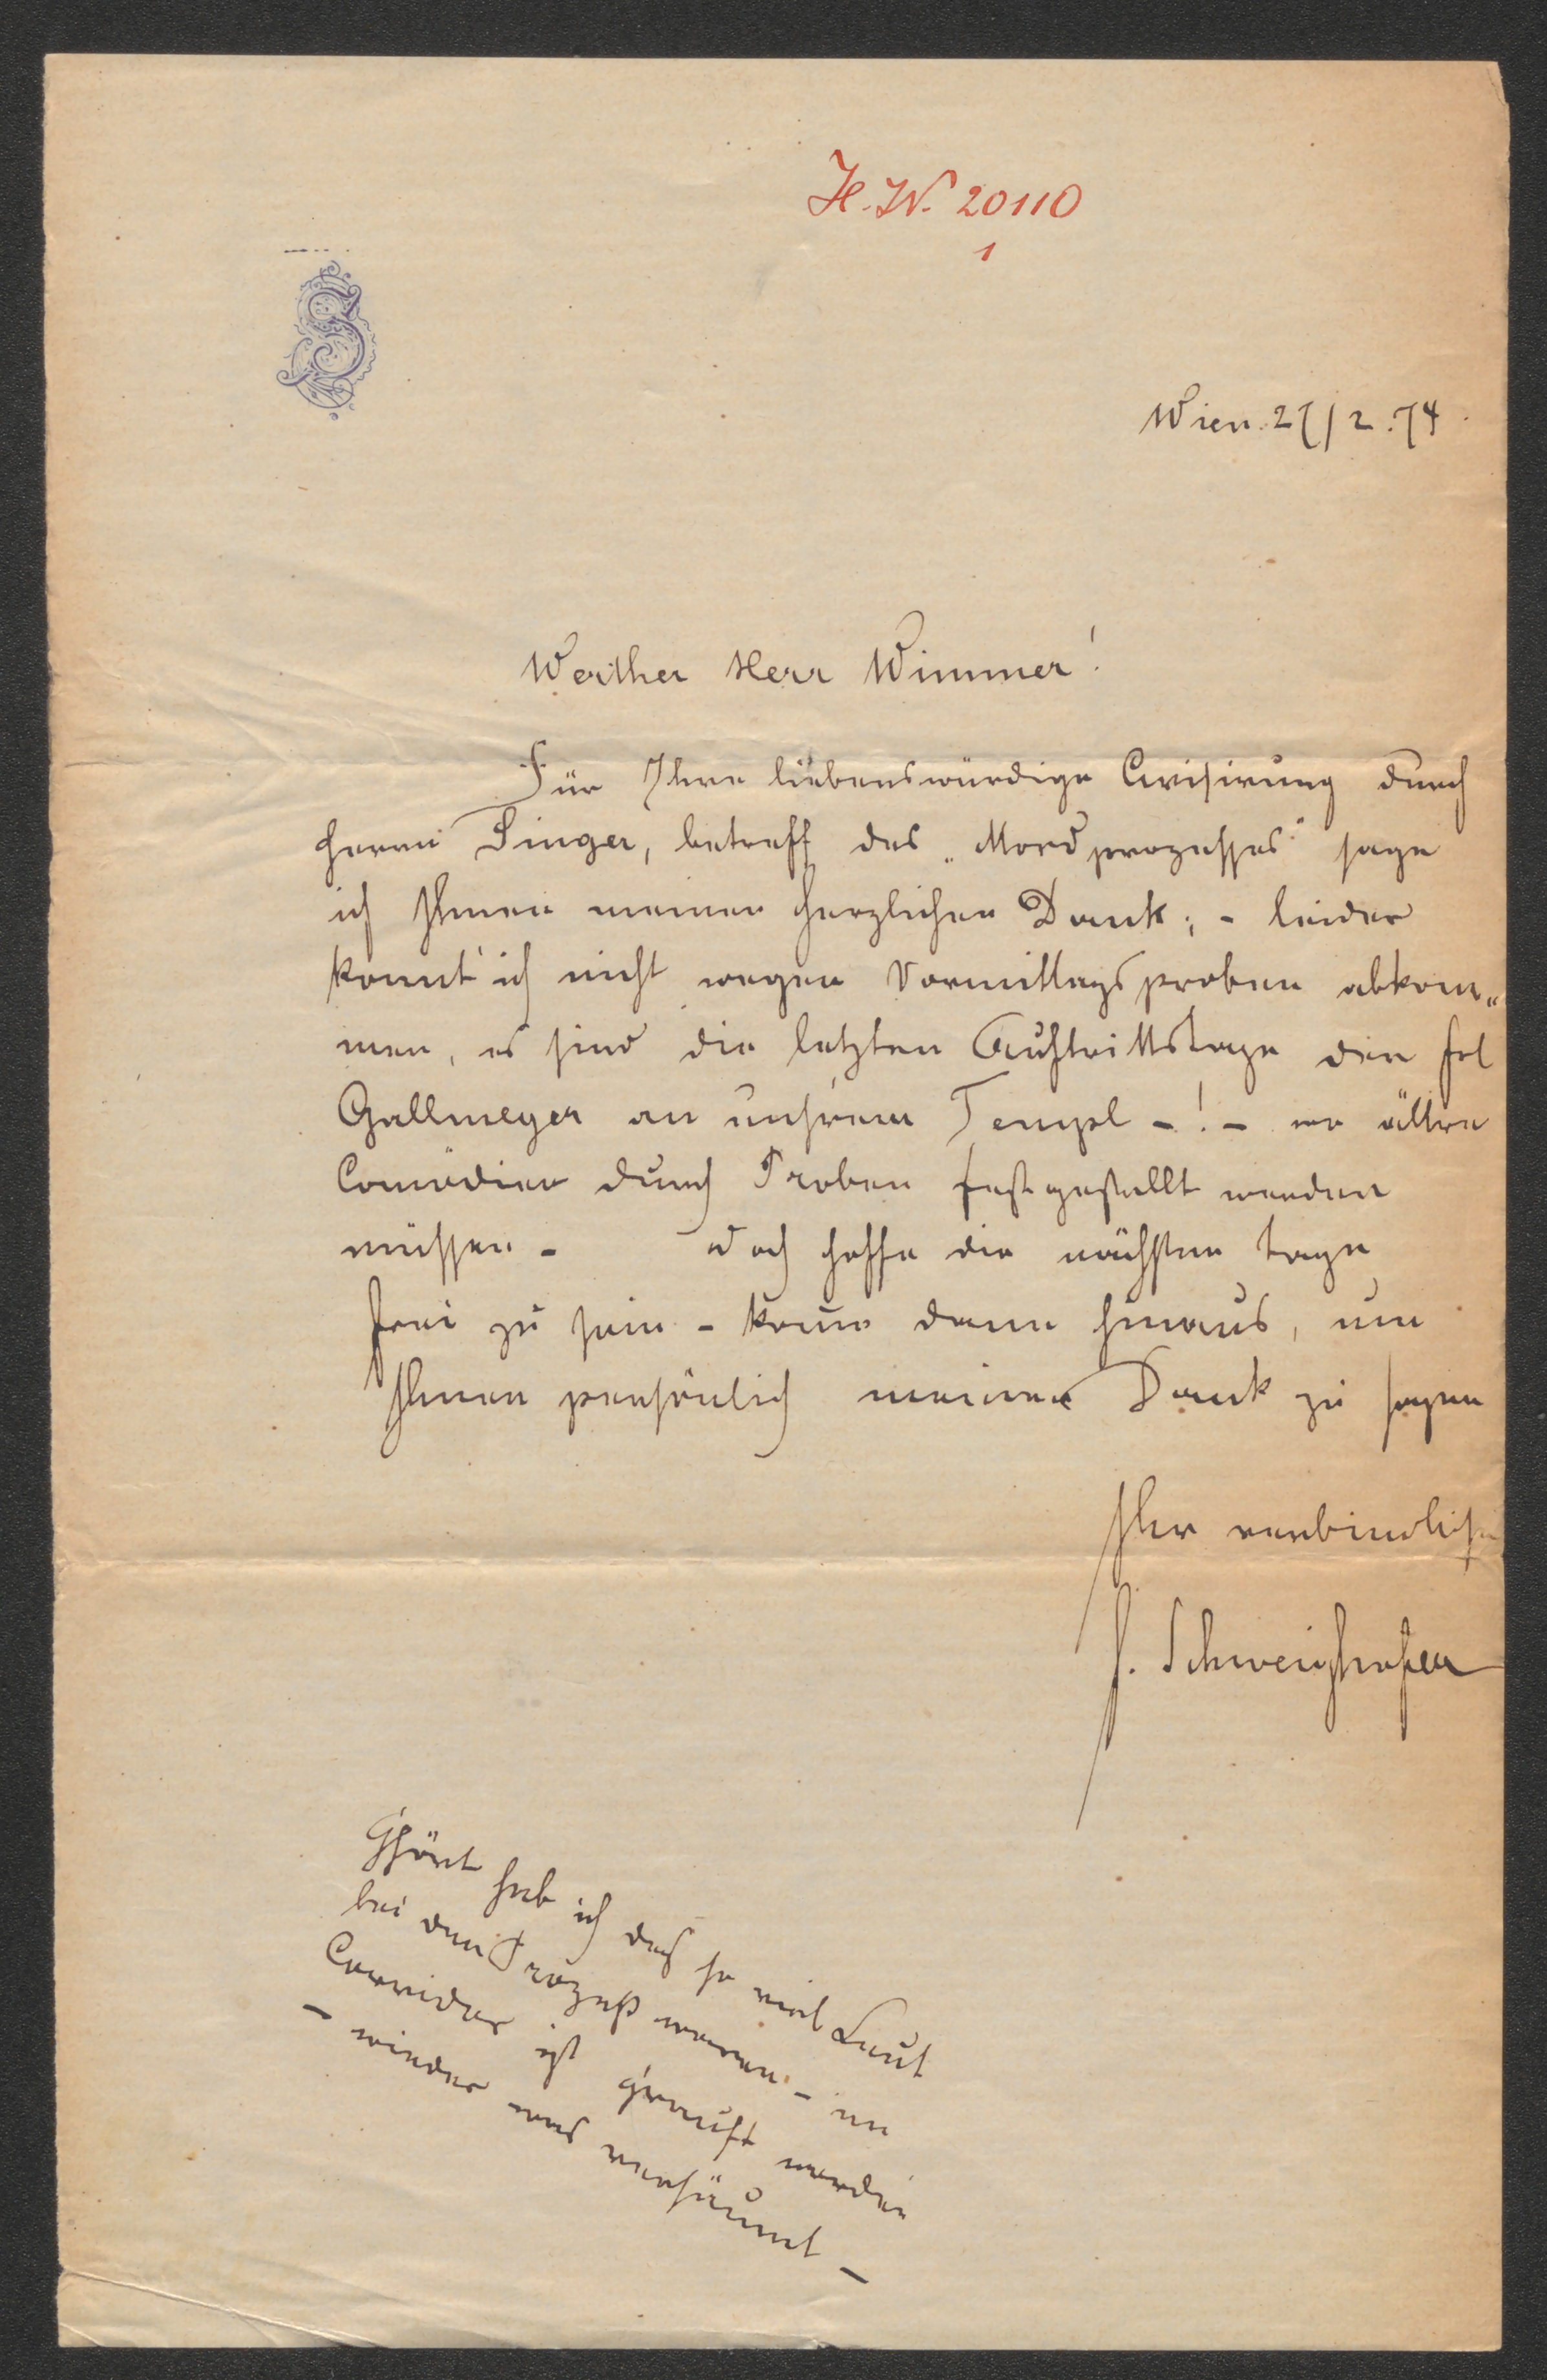 H.W. 20110
1
Wien. 27/2.74.
Werther Herr Wimmer!
Für Ihre liebenswürdige Avisirung durch
Herrn Singer, betreff des „Mordprozesses" sage
ich Ihnen meinen herzlichen Dank; - leider
konnt' ich nicht wegen Vormittagsproben abkom„
men, es sind die letzten Auftrittstage der Frl
Gallmeyer an unsrem Templ -!- wo ältre
Comödien durch Proben festgestellt werden
müssen - doch hoffe die nächsten Tage
frei zu sein - komm dann hinaus, um
Ihnen persönlich meinen Dank zu sagen
Ihr verbindlichst
F. Schweighofer
Ghört hab ich daß so viel Leut
bei dem Prozeß waren - im
Corridor ist grauft worden
- wieder was versäumt -